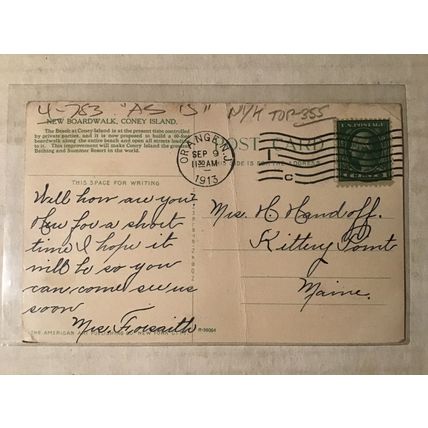 4-783 "AS IS" NYK TOP 355
NEW BOARDWALK, CONEY ISLAND.
The Beach at Coney Island is at the present time controlled
by private parties, and it is now proposed to build a 60-foot
boardwalk along the entire beach and open all streets leading
to it. This improvement will make Coney Island the greatest
Bathing and Summer Resort in the world.
POST CARD
SIDE IS FOR THE ADDRESS
ORANGE N.J.
SEP 9
11 30 AM
1913
C
U.S. POSTAGE
THIS SPACE FOR WRITING
Well how are you?
Here for a short
time I hope it
will be so you
can come see us
soon
Mrs. Forsaith
Mrs. H. Handoff.
Kittery Point
Maine.
THE AMERICAN ART PUBLISHING CO. NEW YORK CITY